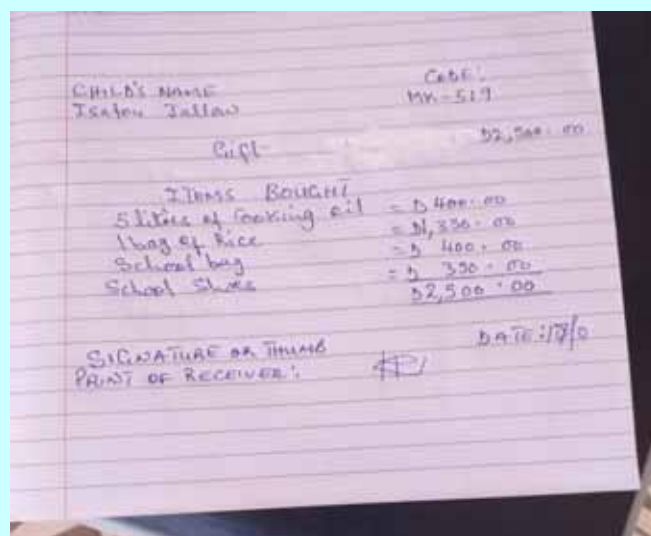 CODE:
CHILD'S NAME
MK-519
Isatou Jallow
Gift D2,500.00
ITEMS BOUGHT
5 litres of Cooking oil = D 400.00
1 bag of Rice = D1,350.00
School bag = D 400.00
School Shoes = D 350.00
D2,500.00
DATE:
SIGNATURE OR THUMB
PRINT OF RECEIVER: